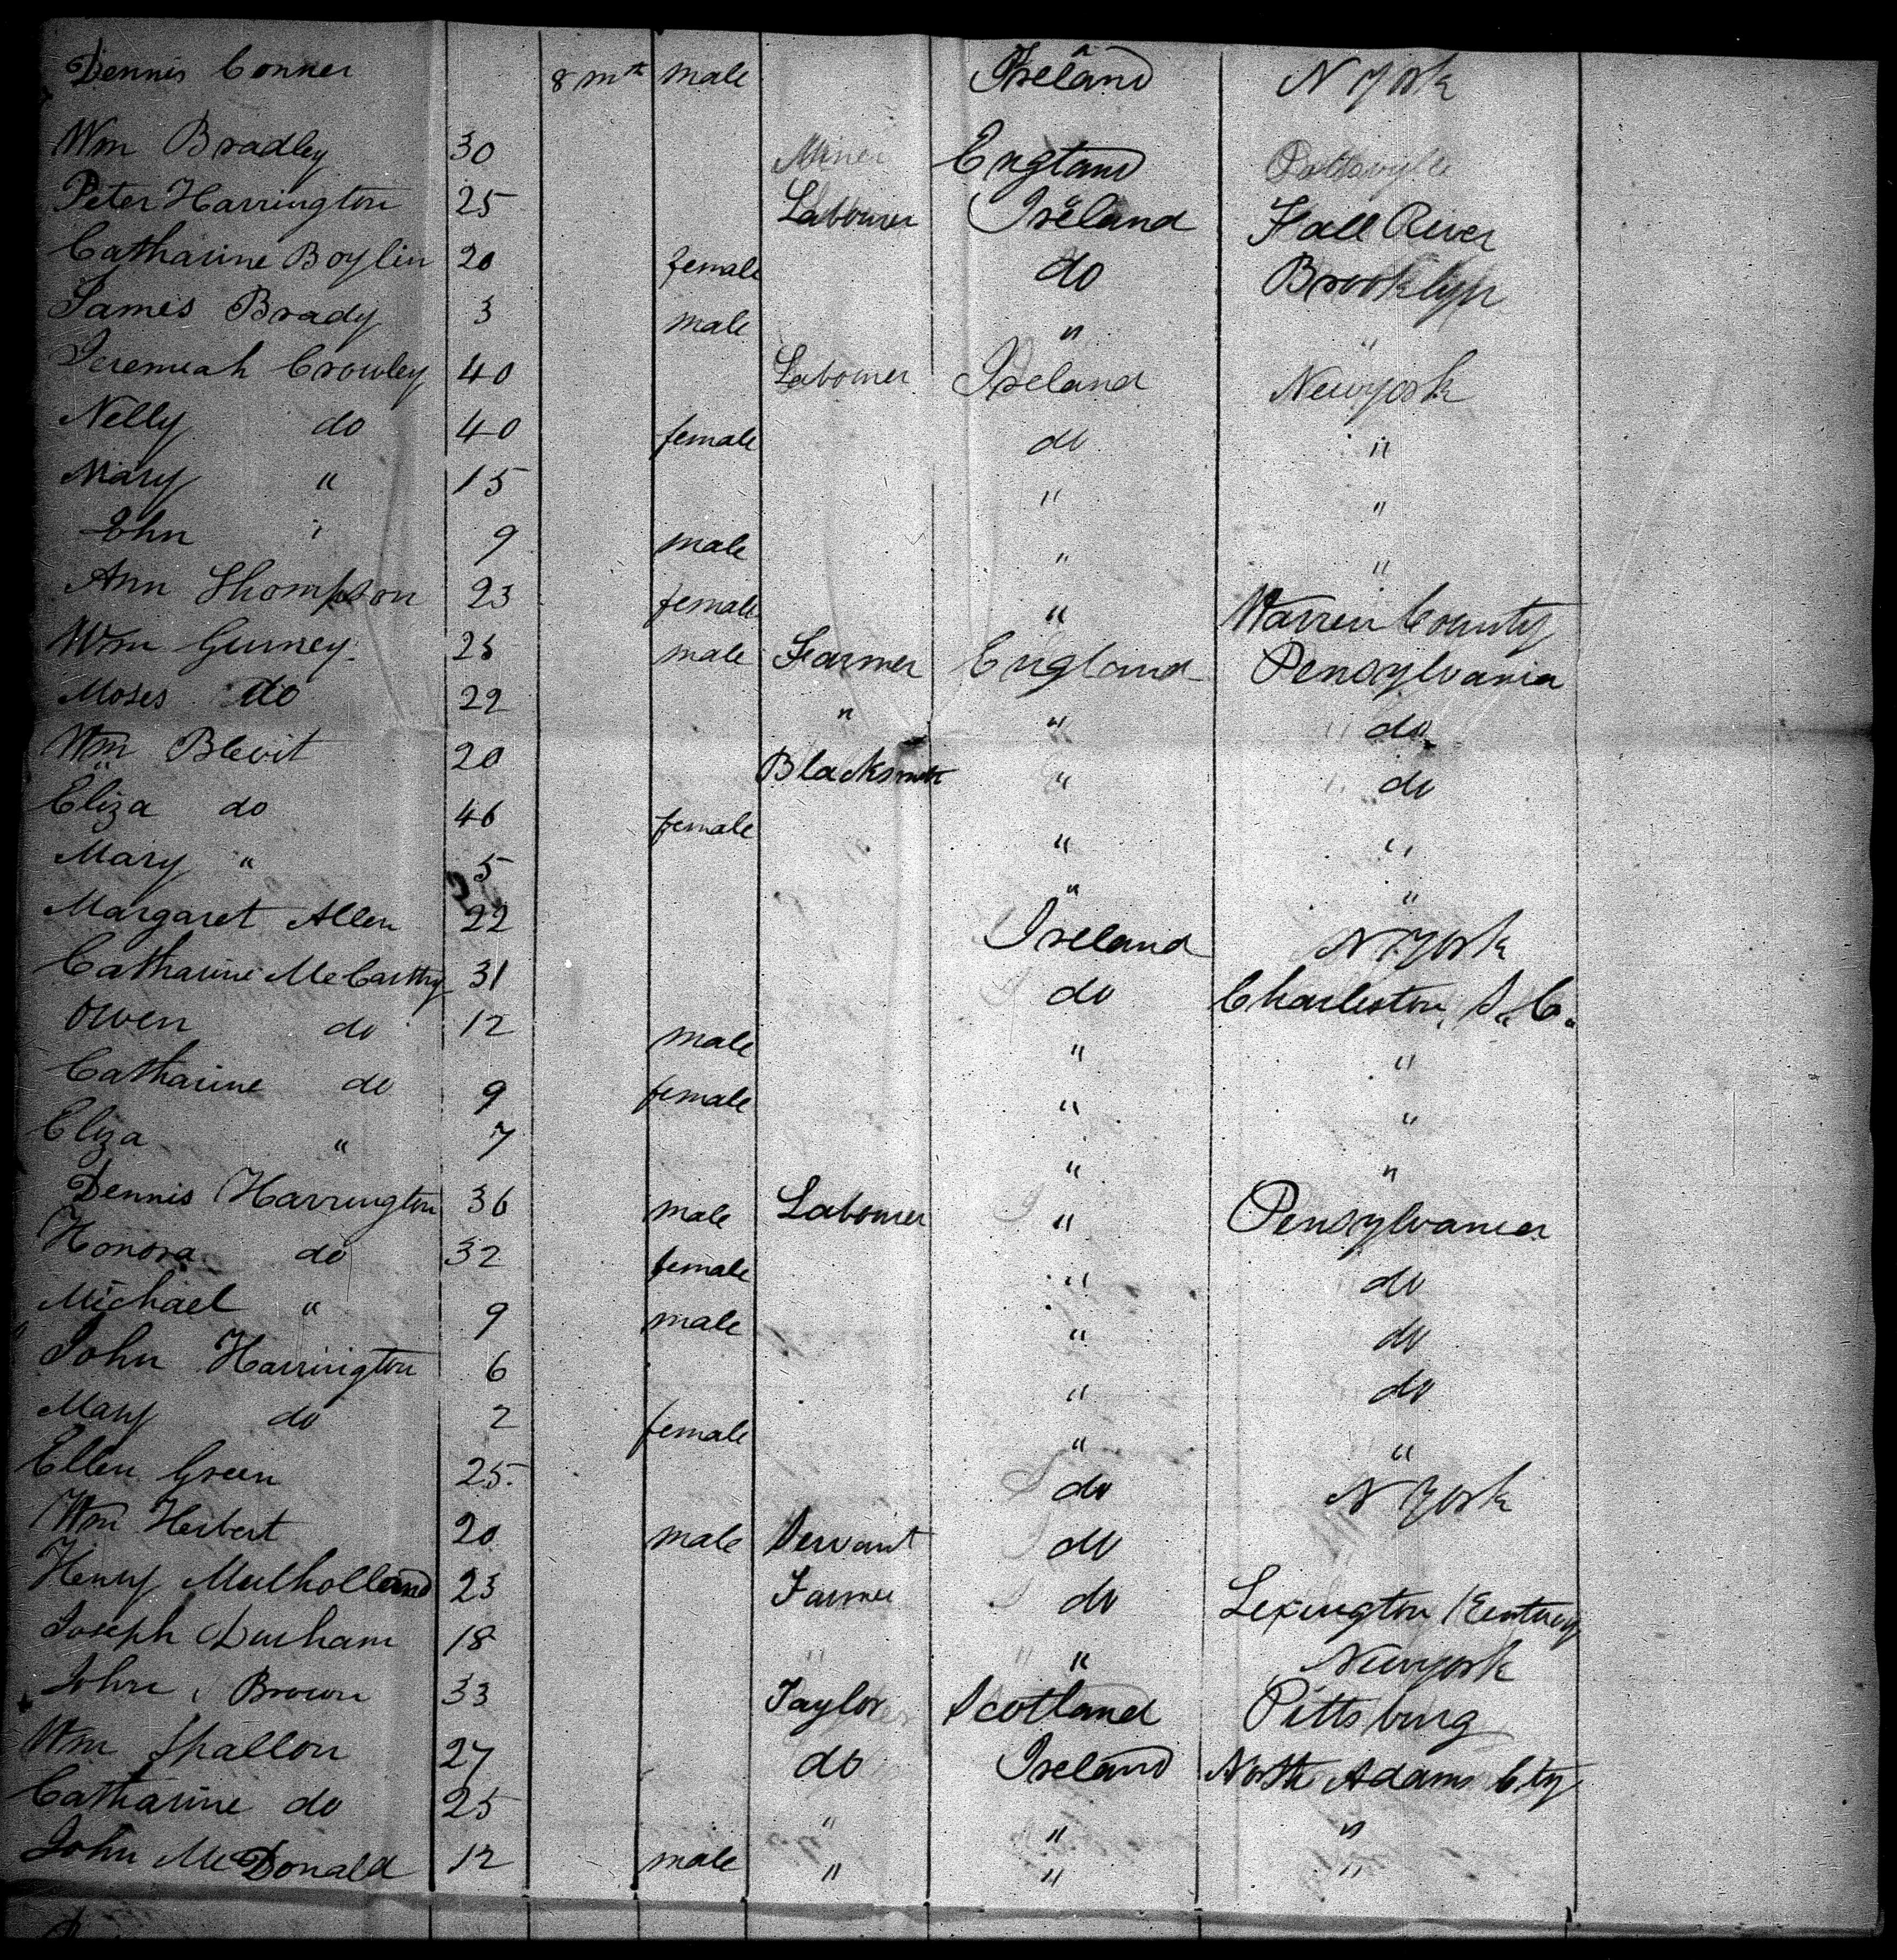 Dennis Conner 8 mth male Ireland N York
Wm Bradley 30 Miner England Pottsvylle
Peter Harrington 25 Labourer Ireland Fall River
Catharine Boylin 20 female do Brooklyn
James Brady 3 male " "
Jeremiah Crowley 40 Labourer Ireland Newyork
Nelly do 40 female do "
Mary " 15 " "
John " 9 male " "
Ann Thompson 23 female " Warren County
Wm Gurney 25 male Farmer England Pensylvania
Moses do 22 " " do
Wm Blevit 20 Blacksmith " do
Eliza do 46 female " "
Mary " 5 " "
Margaret Allen 22 Ireland N York
Catharine McCarthy 31 do Charleston, S. C.
Owen do 12 male " "
Catharine do 9 female " "
Eliza " 7 " "
Dennis Harrington 36 male Labourer " Pensylvania
Honora do 32 female " do
Michael " 9 male " do
John Harrington 6 " do
Mary do 2 female " "
Ellen Green 25 do N York
Wm Herbert 20 male Servant do
Henry Mulholland 23 Farmer do Lexington Kentucy
Joseph Durham 18 " " Newyork
John Brown 33 Taylor Scotland Pittsburg
Wm Spallon 27 do Ireland North Adams Cty
Catharine do 25 " " "
John McDonald 12 male " " "